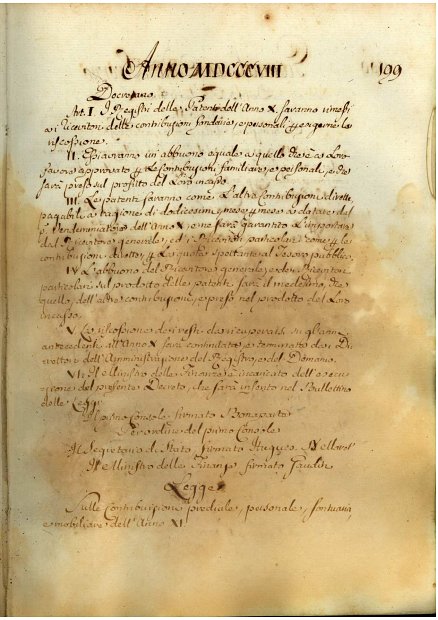 ANNO MDCCCVIII 199
Decretano
Art. I. I Registri delle Patente dell'Anno X. saranno rimessi
ai Ricevitori delle contribuzioni fondiarie, e personali per esigerne la
riscossione.
II. Essi avranno un abbuono eguale a quello che è a Loro
favore approvato per le Contribuzioni familiare, e personale, e che
sarà preso sul profitto del Loro incasso
III. Le patenti saranno come l'altre Contribuzioni dirette,
pagabili a ragione di dodicesimi, mese per mese a datare del
Vendemmiatore dell'Anno X, e ne sarà garantito l'importare
dal Ricevitore generale, ed i Ricevitori particolari come per le
contribuzioni dirette, per la quota spettante al Tesoro pubblico.
IV. L'abbuono del Ricevitore generale, e dei Ricevitori
particolari sul prodotto delle patenti sarà il medesimo che
quello dell'altre contribuzioni, e preso nel prodotto del Loro
incasso.
V. La riscossione dei resti da ricuperarsi su gl'anni
antecedenti all'Anno X sarà continuata, e terminata dai Di-
rettori dell'Amministrazione del Registro, e del Demanio.
VI. Il Ministro delle Finanze è incaricato dell'esecu-
zione del presente Decreto, che sarà inserto nel Bullettino
delle Leggi
Il primo Console firmato Bonaparte
Per ordine del primo Console
Il Segretario di Stato firmato Hugues, B. Maret
Il Ministro delle Finanze firmato Gaudin
Legge
Sulle Contribuzioni prediale, personale, sontuaria
e mobiliare dell'Anno XI